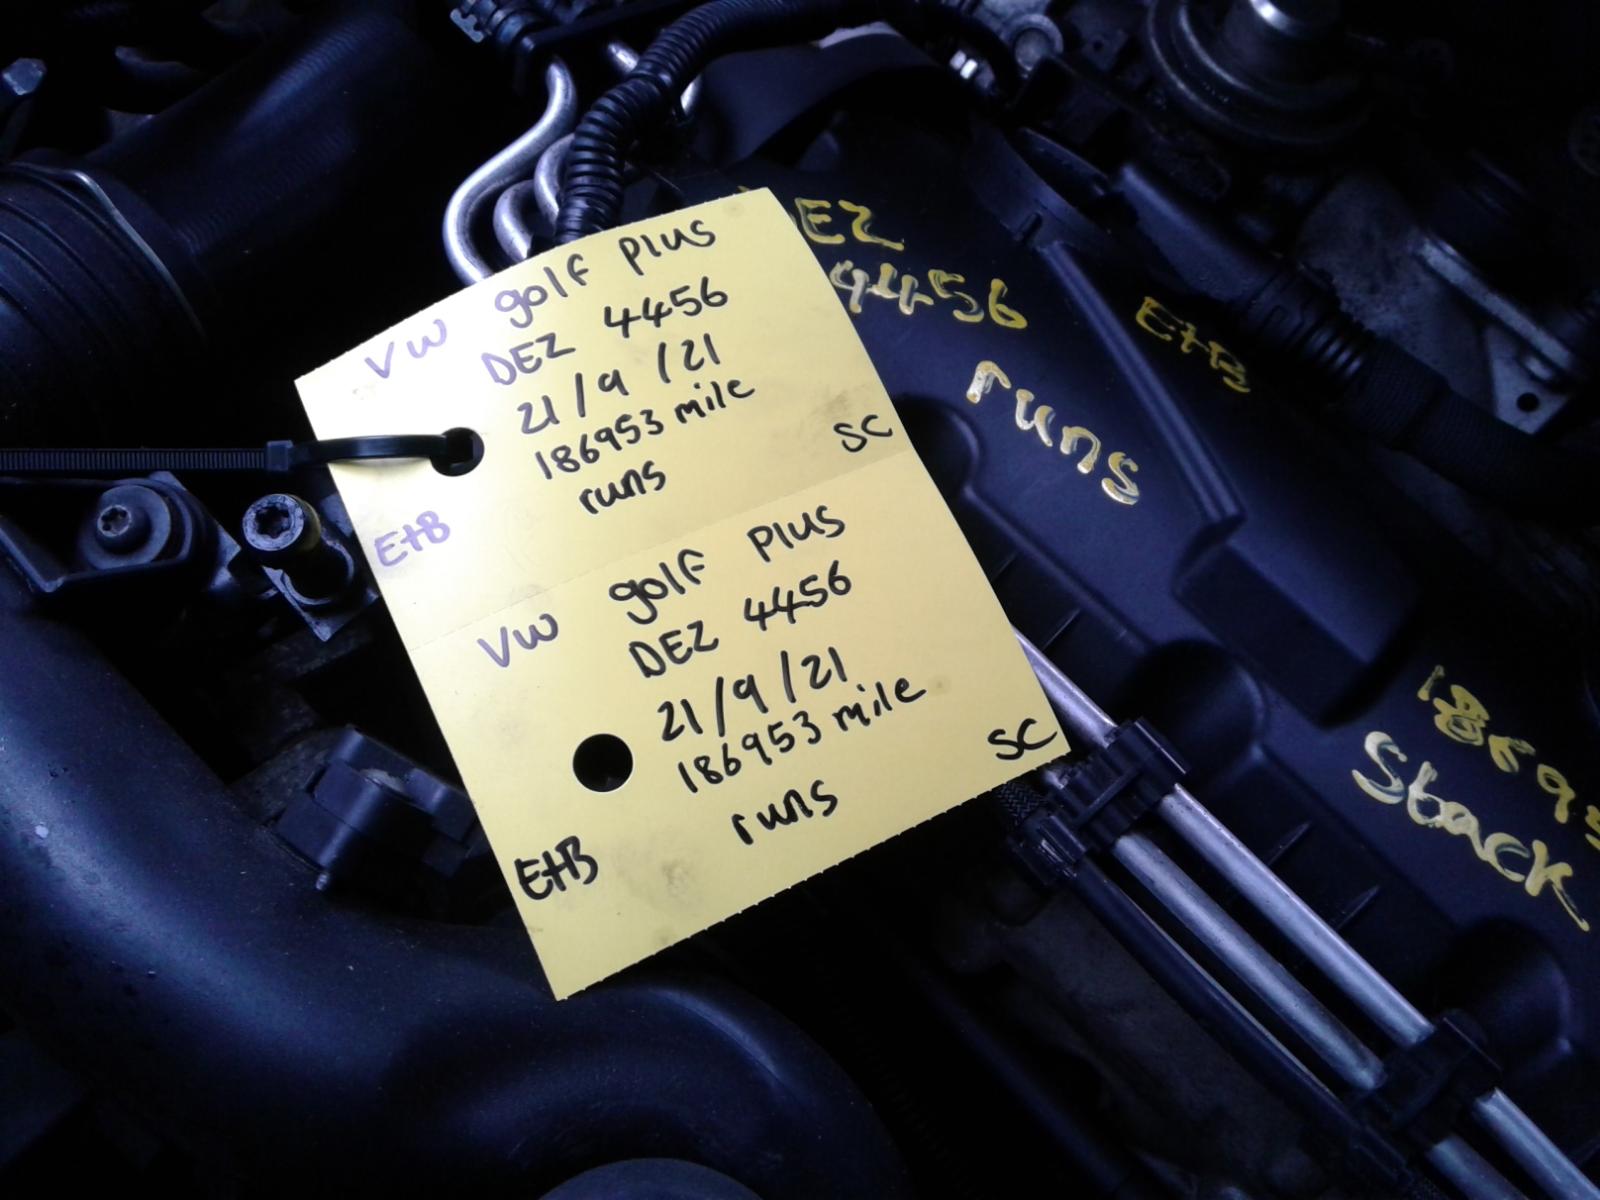 VW golf plus
DEZ 4456
21/9/21
186953 mile
runs
SC
EHB
VW golf plus
DEZ 4456
21/9/21
186953 mile
runs
SC
EHB
DEZ
4456
EHB
runs
Stack